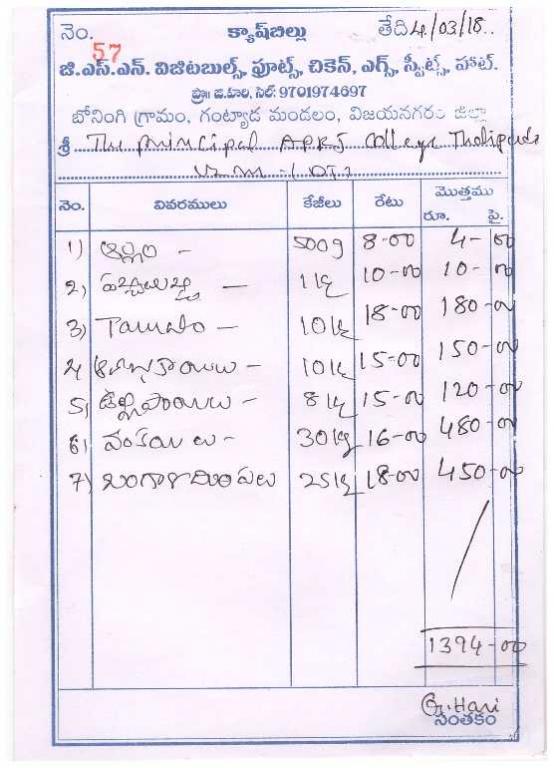 నెం. 57 క్యాష్‌బిల్లు తేది 4/03/18..
జి.ఎస్.ఎన్. విజిటబుల్స్, ఫ్రూట్స్, చికెన్, ఎగ్స్, స్వీట్స్, హాట్.
ప్రొ॥ జి.హరి, సెల్: 9701974697
బోనింగి గ్రామం, గంట్యాడ మండలం, విజయనగరం జిల్లా
శ్రీ The principal APRJ College
నెం. వివరములు కేజీలు రేటు మొత్తము
రూ. పై.
1) అల్లం - 500g 8-00 4-00
2) - 1kg 10-00 10-00
3) Tamato - 10kg 18-00 180-00
4) - 10kg 15-00 150-00
5) ఉల్లిపాయలు - 8kg 15-00 120-00
6) వంకాయలు - 30kg 16-00 480-00
7) బంగాళదుంపలు 25kg 18-00 450-00
1394-00
G.Hari
సంతకం